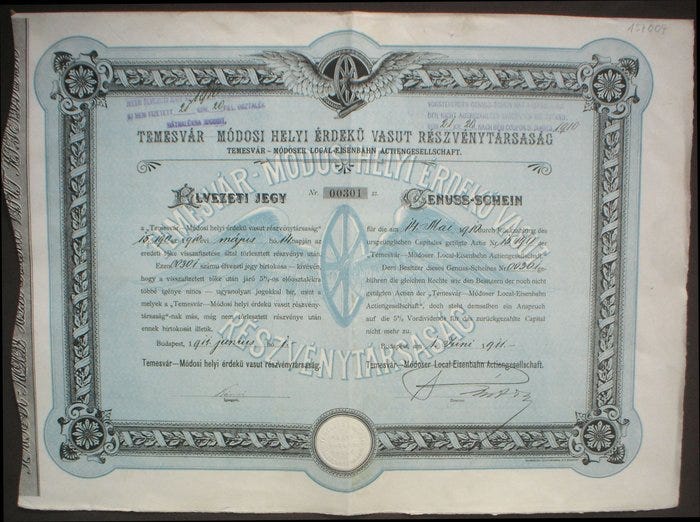 154004
TEMESVÁR–MÓDOSI HELYI ÉRDEKŰ VASUT RÉSZVÉNYTÁRSASÁG
TEMESVÁR–MÓDOSER LOCAL-EISENBAHN ACTIENGESELLSCHAFT.
TEMESVÁR-MÓDOSI HELYI ÉRDEKŰ VASUT
RÉSZVÉNYTÁRSASÁG
Nr. 00301 sz.
ÉLVEZETI JEGY
a „Temesvár–Módosi helyi érdekű vasut részvénytársaság"
május hó 14 napján az
eredeti tőke visszafizetése által törlesztett részvénye után.
Ezen 00301 számu élvezeti jegy birtokosa — kivévén,
hogy a visszafizetett tőke után járó 5%-os előosztalékra
többé igénye nincs — ugyanolyan jogokkal bir, mint a
melyek a „Temesvár–Módosi helyi érdekű vasut részvény-
társaság"-nak más, még nem törlesztett részvénye után
ennek birtokosait illetik.
Budapest, 1911 junius hó 1.
Temesvár–Módosi helyi érdekű vasut részvénytársaság.
Igazgató.
GENUSS-SCHEIN
für die am 14 Mai 1910 durch Rückzahlung des
ursprünglichen Capitales getilgte Actie Nr.
der
„Temesvár–Módoser Local-Eisenbahn Actiengesellschaft."
Dem Besitzer dieses Genuss-Scheines Nr. 00301 ge-
bühren die gleichen Rechte wie den Besitzern der noch nicht
getilgten Actien der „Temesvár–Módoser Local-Eisenbahn
Actiengesellschaft", doch steht demselben ein Anspruch
auf die 5% Vordividende für das zurückgezahlte Capital
nicht mehr zu.
Budapest, am 1. Juni 1911.
Temesvár–Módoser Local-Eisenbahn Actiengesellschaft.
Director.